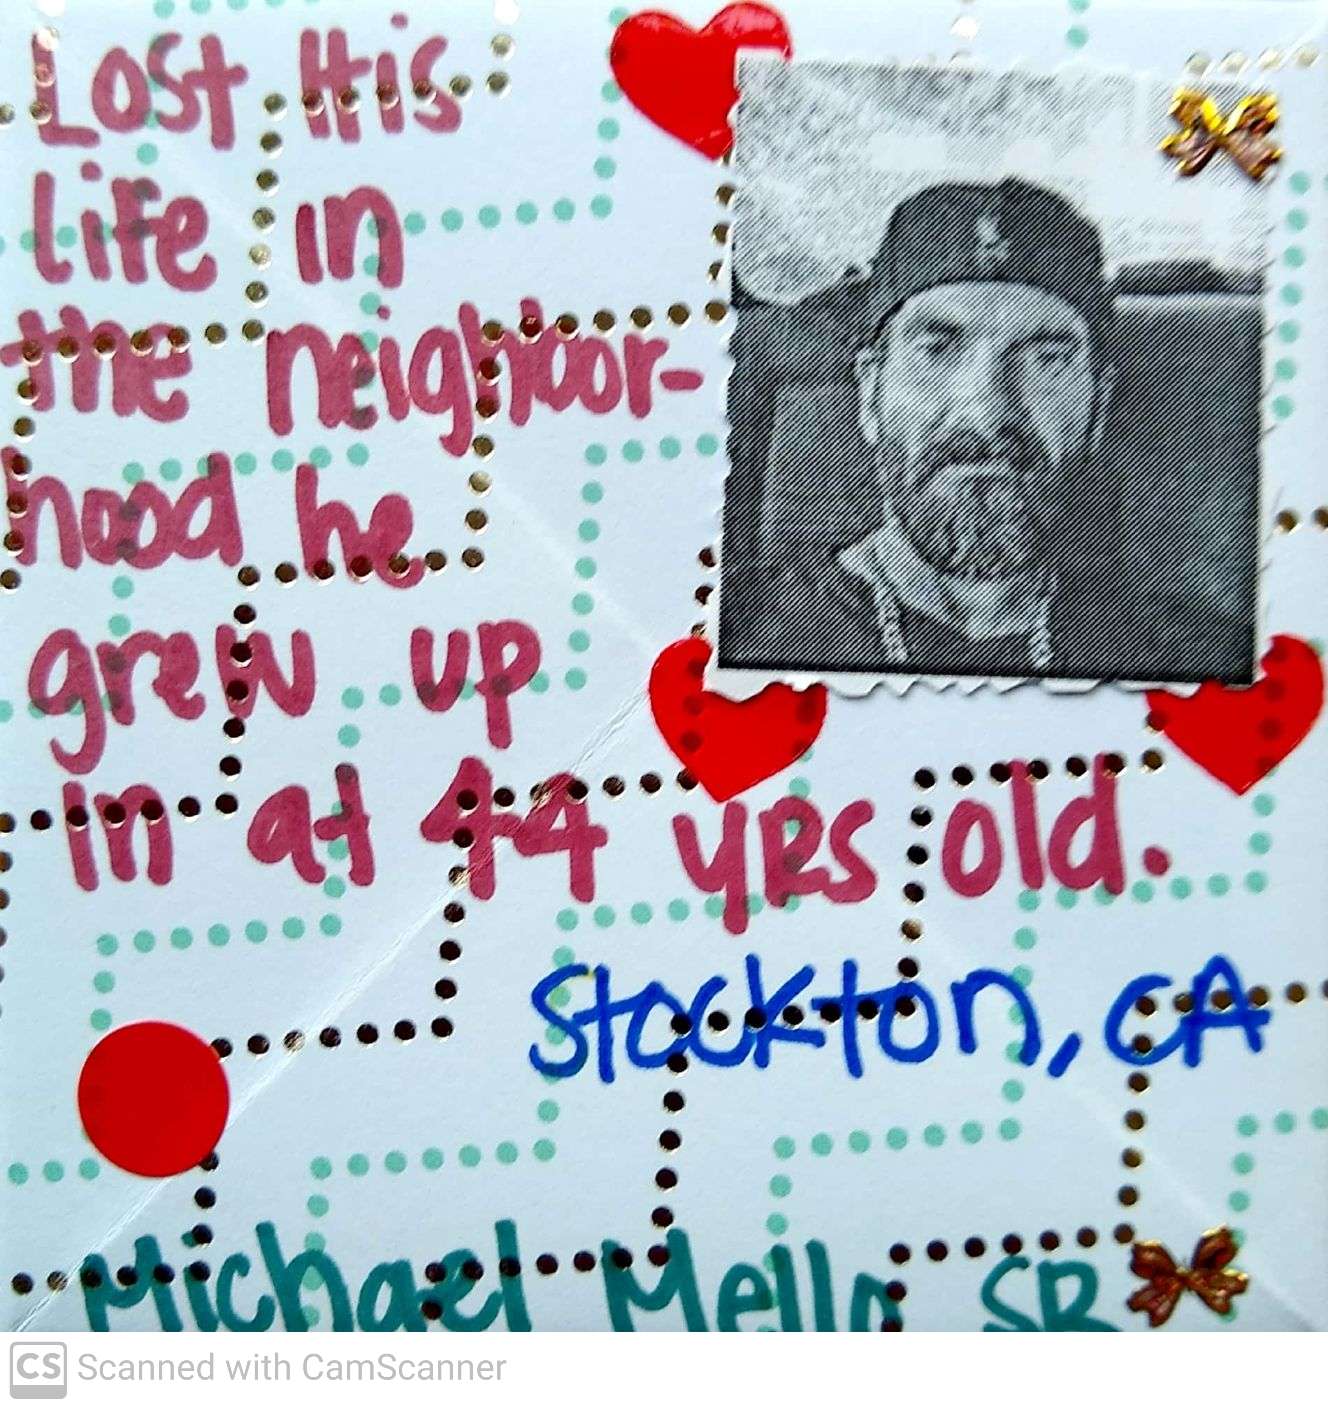 Lost His
life in
the neighbor-
hood he
grew up
in at 44 yrs old.
Stockton, CA
Michael Mello SR
CS Scanned with CamScanner